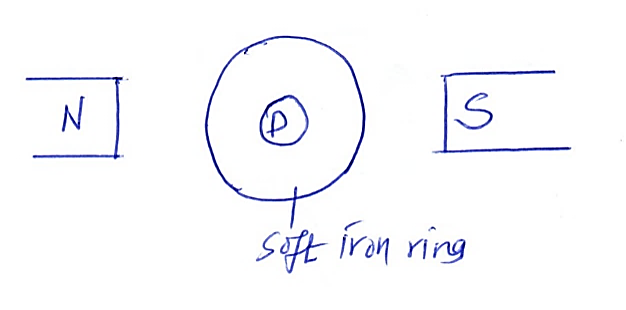 N
P
S
Soft iron ring